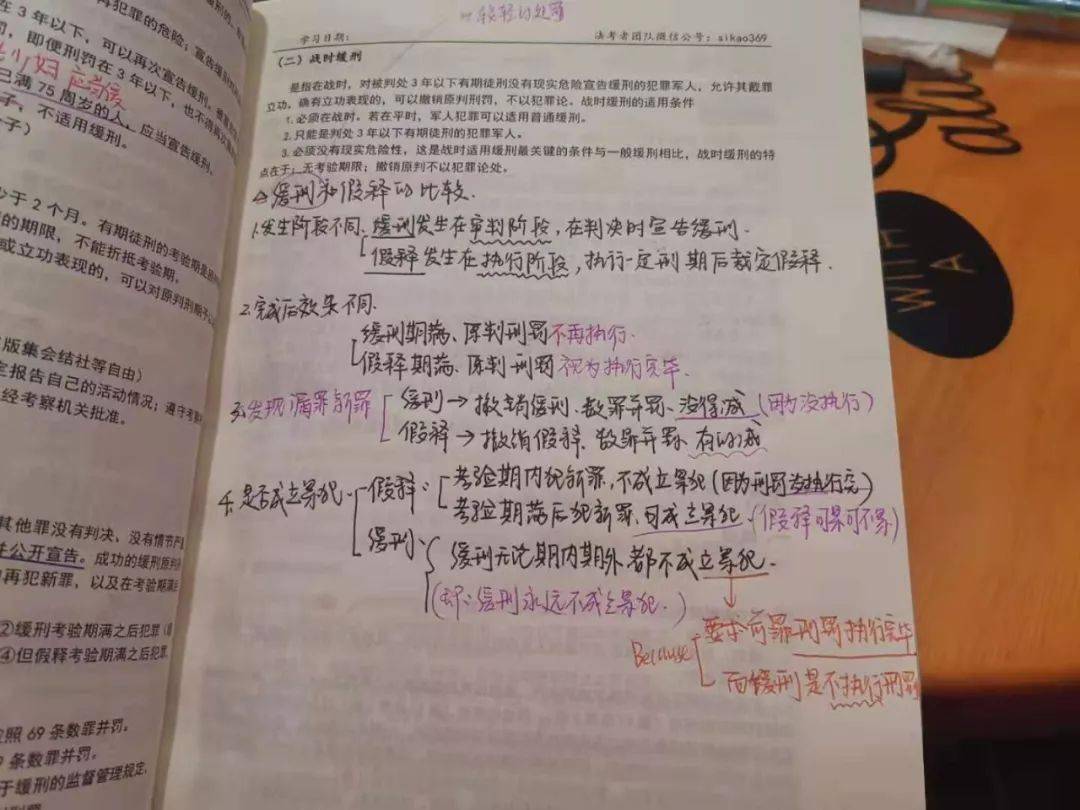 再犯罪的危险；宣告缓刑
在3年以下，可以再次宣告缓刑。
，即便刑罚在3年以下，也不得再次
少 妇 应当缓
已满75周岁的人，应当宣告缓刑。
子，不适用缓刑。
子）
少于2个月。有期徒刑的考验是
的期限，不能折抵考验期。
或立功表现的，可以对原判刑期予以
版集会结社等自由）
定报告自己的活动情况；遵守考察
经考察机关批准。
其他罪没有判决、没有情节严
并公开宣告。成功的缓刑原判
中再犯新罪，以及在考验期满后
②缓刑考验期满之后犯罪
④但假释考验期满之后犯罪
照69条数罪并罚。
条数罪并罚。
于缓刑的监督管理规定，
较轻的处罚
学习日期： 法考者团队微信公号：sikao369
（二）战时缓刑
是指在战时，对被判处3年以下有期徒刑没有现实危险宣告缓刑的犯罪军人，允许其戴罪
立功，确有立功表现的，可以撤销原判刑罚，不以犯罪论。战时缓刑的适用条件
1.必须在战时。若在平时，军人犯罪可以适用普通缓刑。
2.只能是判处3年以下有期徒刑的犯罪军人。
3.必须没有现实危险性，这是战时适用缓刑最关键的条件与一般缓刑相比，战时缓刑的特
点在于：无考验期限；撤销原判不以犯罪论处。
缓刑和假释的比较.
1.发生阶段不同.缓刑发生在审判阶段，在判决时宣告缓刑.
假释发生在执行阶段，执行一定刑期后裁定假释.
2.完成后效果不同.
缓刑期满、原判刑罚不再执行.
假释期满、原判刑罚视为执行完毕.
3.发现漏罪新罪 缓刑→撤销缓刑、数罪并罚、没得减（因为没执行）
假释→撤销假释、数罪并罚、有的减
4.是否成立累犯. 假释. 考验期内犯新罪，不成立累犯（因为刑罚没执行完）
考验期满后犯新罪、可成立累犯.（假释可累可不累）
缓刑. 缓刑无论期内期外都不成立累犯.
（即：缓刑永远不成立累犯.）
要求前罪刑罚执行完毕
Because
而缓刑是不执行刑罚
WITH
A